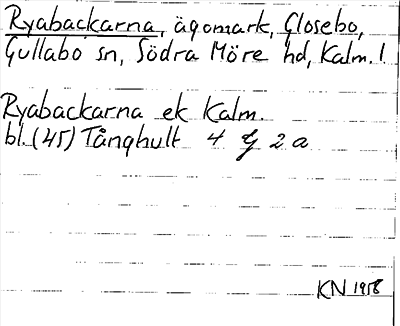 Ryabackarna, ägomark, Closebo,
Gullabo sn, Södra Möre hd, Kalm. l
Ryabackarna ek Kalm.
bl. (45) Tånghult 4 G 2 a
KN 1958